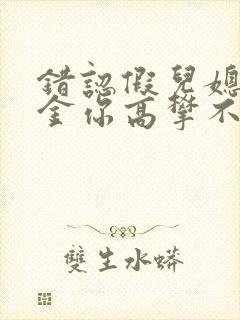 錯認假兒媳
金你高攀不
雙生水蟒